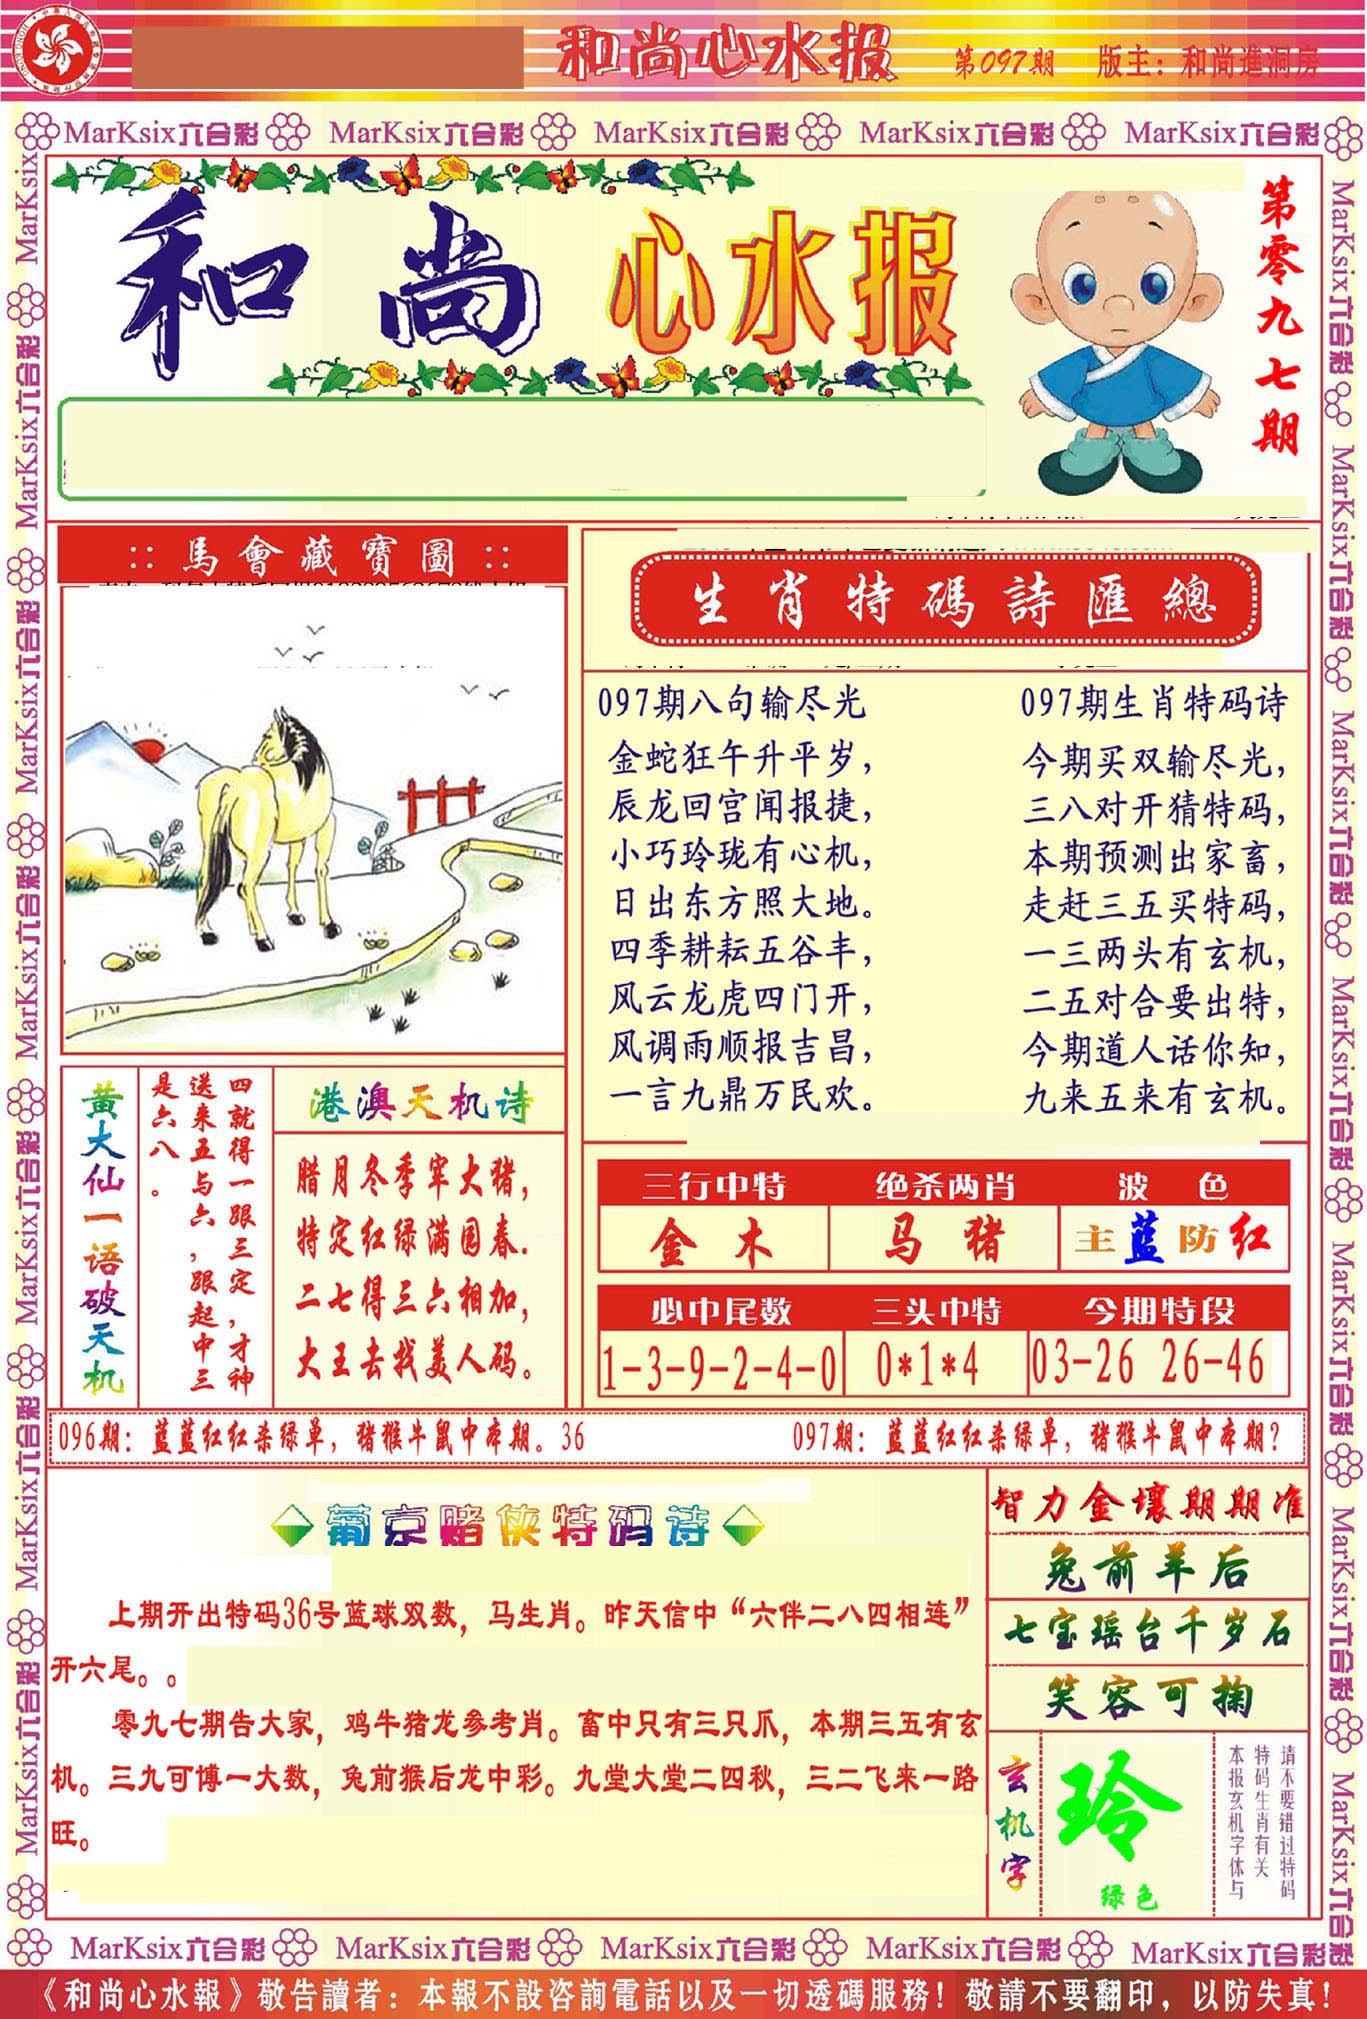 和尚心水报 第097期 版主：和尚進洞房
MarKsix六合彩 MarKsix六合彩 MarKsix六合彩 MarKsix六合彩 MarKsix六合彩
和尚心水报
第零九七期
::馬會藏寶圖::
生肖特碼詩匯總
097期八句输尽光
金蛇狂午升平岁，
辰龙回宫闻报捷，
小巧玲珑有心机，
日出东方照大地。
四季耕耘五谷丰，
风云龙虎四门开，
风调雨顺报吉昌，
一言九鼎万民欢。
097期生肖特码诗
今期买双输尽光，
三八对开猜特码，
本期预测出家畜，
走赶三五买特码，
一三两头有玄机，
二五对合要出特，
今期道人话你知，
九来五来有玄机。
黄大仙一语破天机
四就得一跟三定，才神
送来五与六，跟起中三
是六八。
港澳天机诗
腊月冬季宰大猪，
特定红绿满园春.
二七得三六相加，
大王去找美人码。
三行中特 绝杀两肖 波色
金木 马猪 主蓝防红
必中尾数 三头中特 今期特段
1-3-9-2-4-0 0*1*4 03-26 26-46
096期：蓝蓝红红杀绿单，猪猴牛鼠中本期。36 097期：蓝蓝红红杀绿单，猪猴牛鼠中本期？
葡京赌侠特码诗
上期开出特码36号蓝球双数，马生肖。昨天信中“六伴二八四相连”
开六尾。。
零九七期告大家，鸡牛猪龙参考肖。畜中只有三只爪，本期三五有玄
机。三九可博一大数，兔前猴后龙中彩。九堂大堂二四秋，三二飞来一路
旺。
智力金壤期期准
兔前羊后
七宝瑶台千岁石
笑容可掬
玄机字
玲
绿色
请不要错过特码
特码生肖有关
本报玄机字体与
MarKsix六合彩 MarKsix六合彩 MarKsix六合彩 MarKsix六合彩 MarKsix六合彩
《和尚心水報》敬告讀者：本報不設咨詢電話以及一切透碼服務！敬請不要翻印，以防失真！